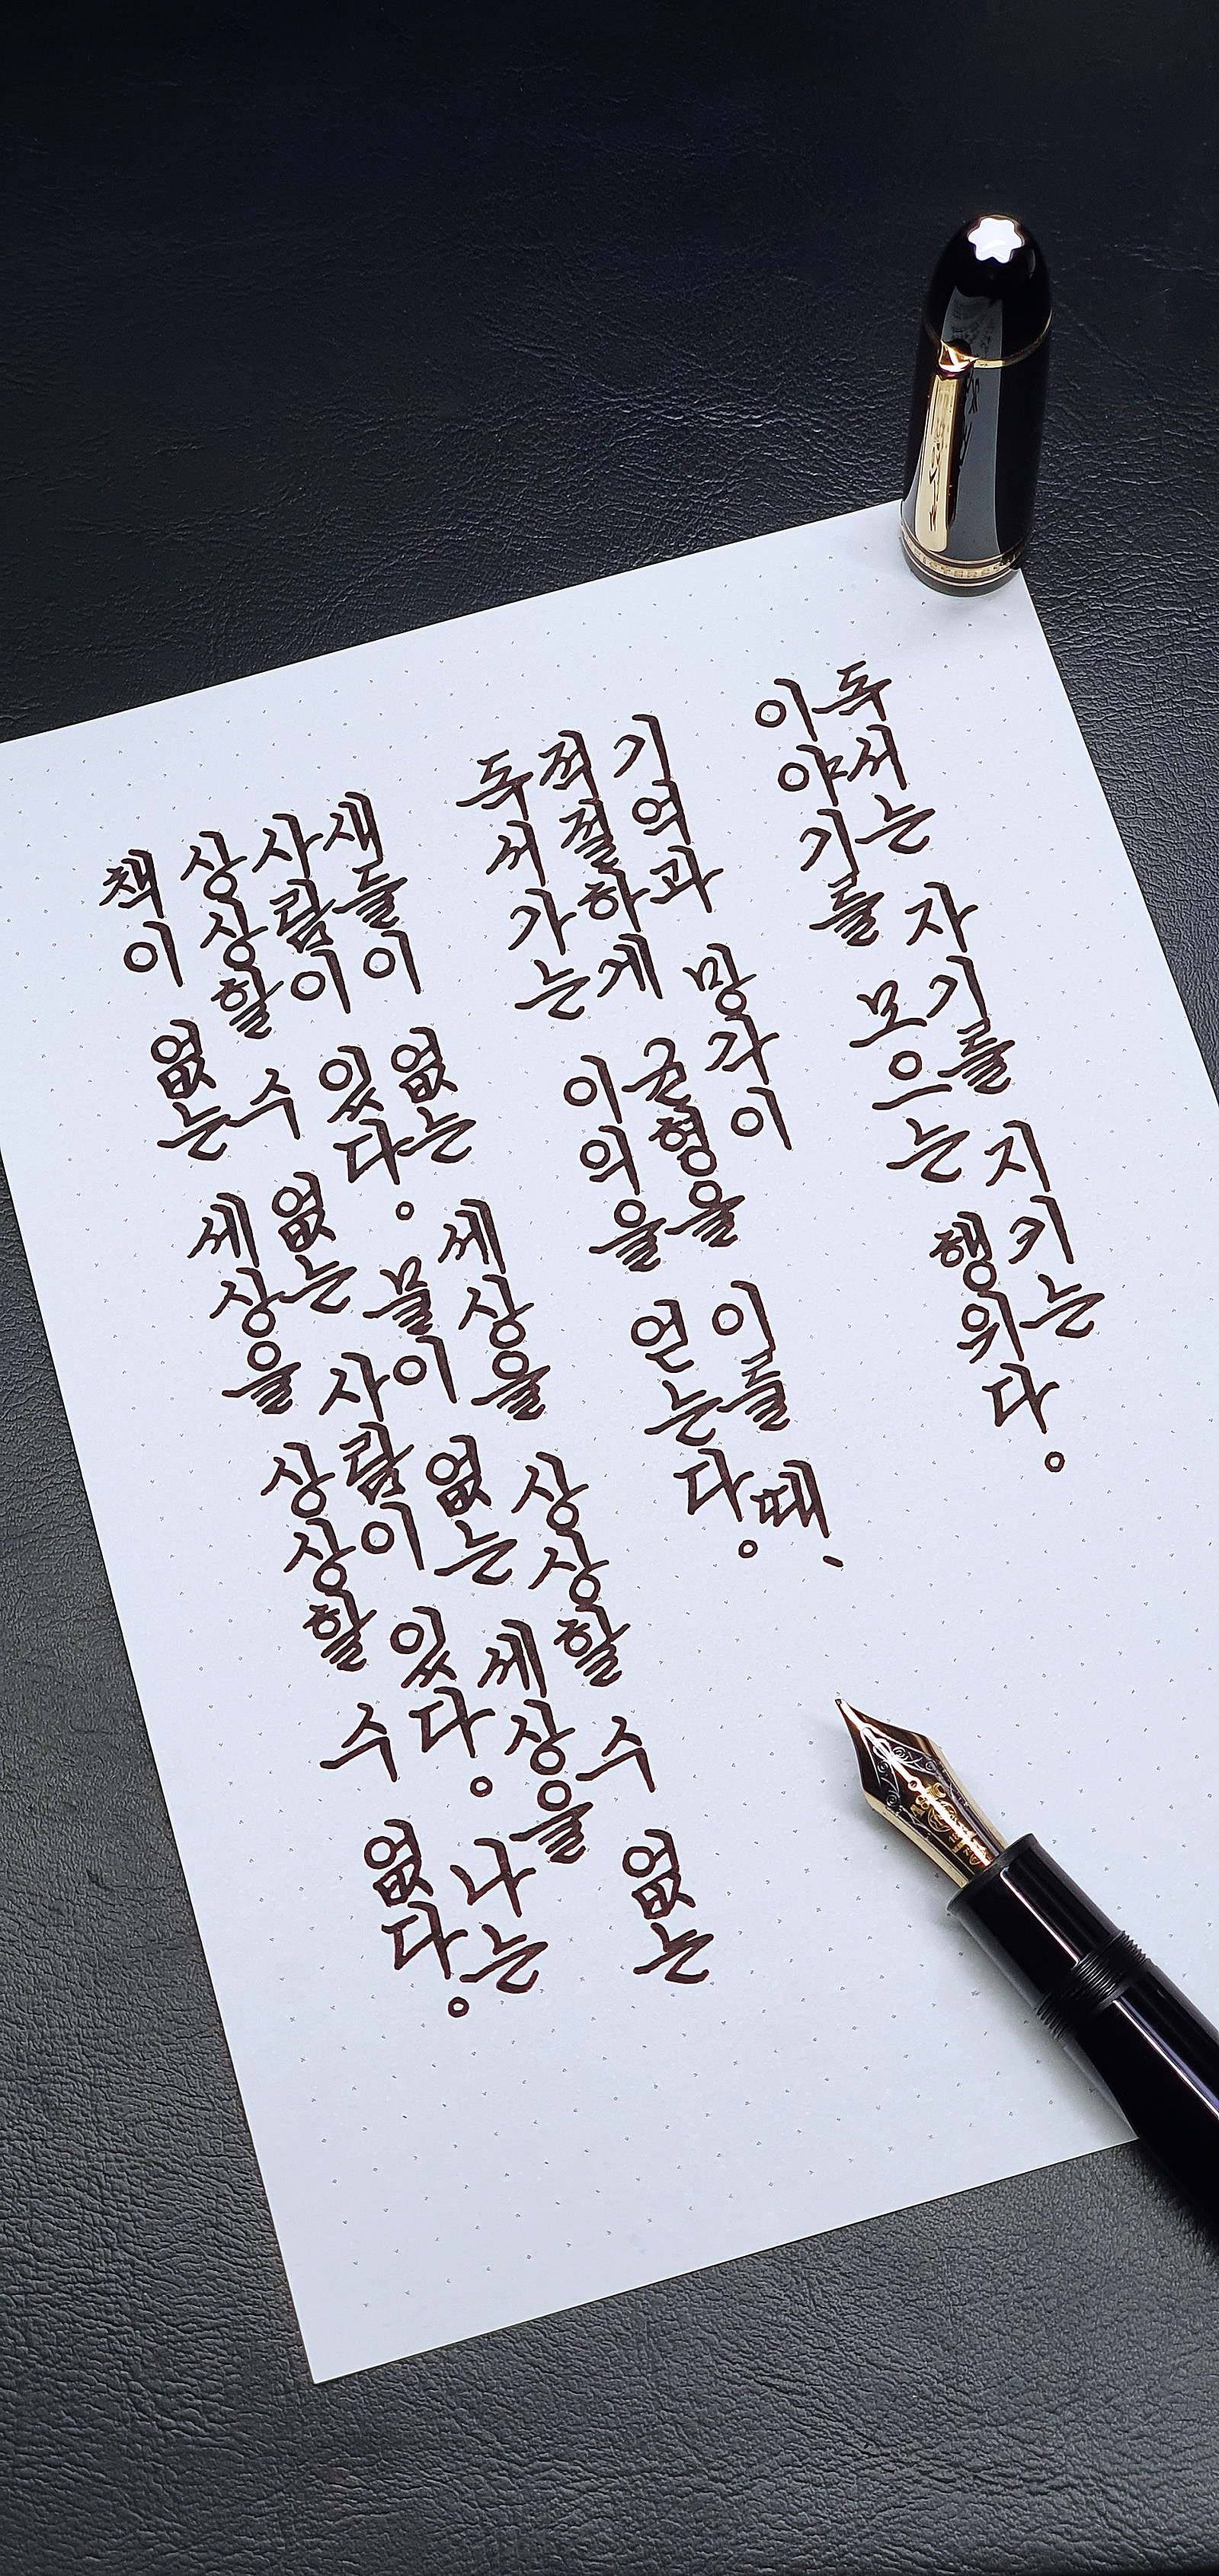 독서는 자기를 지키는
이야기를 모으는 행위다。
기억과 망각이
적절하게 균형을 이룰 때、
독서가는 이익을 얻는다。
새들이 없는 세상을 상상할 수 없는
사람이 있다。 물이 없는 세상을
상상할 수 없는 사람이 있다。 나는
책이 없는 세상을 상상할 수 없다。